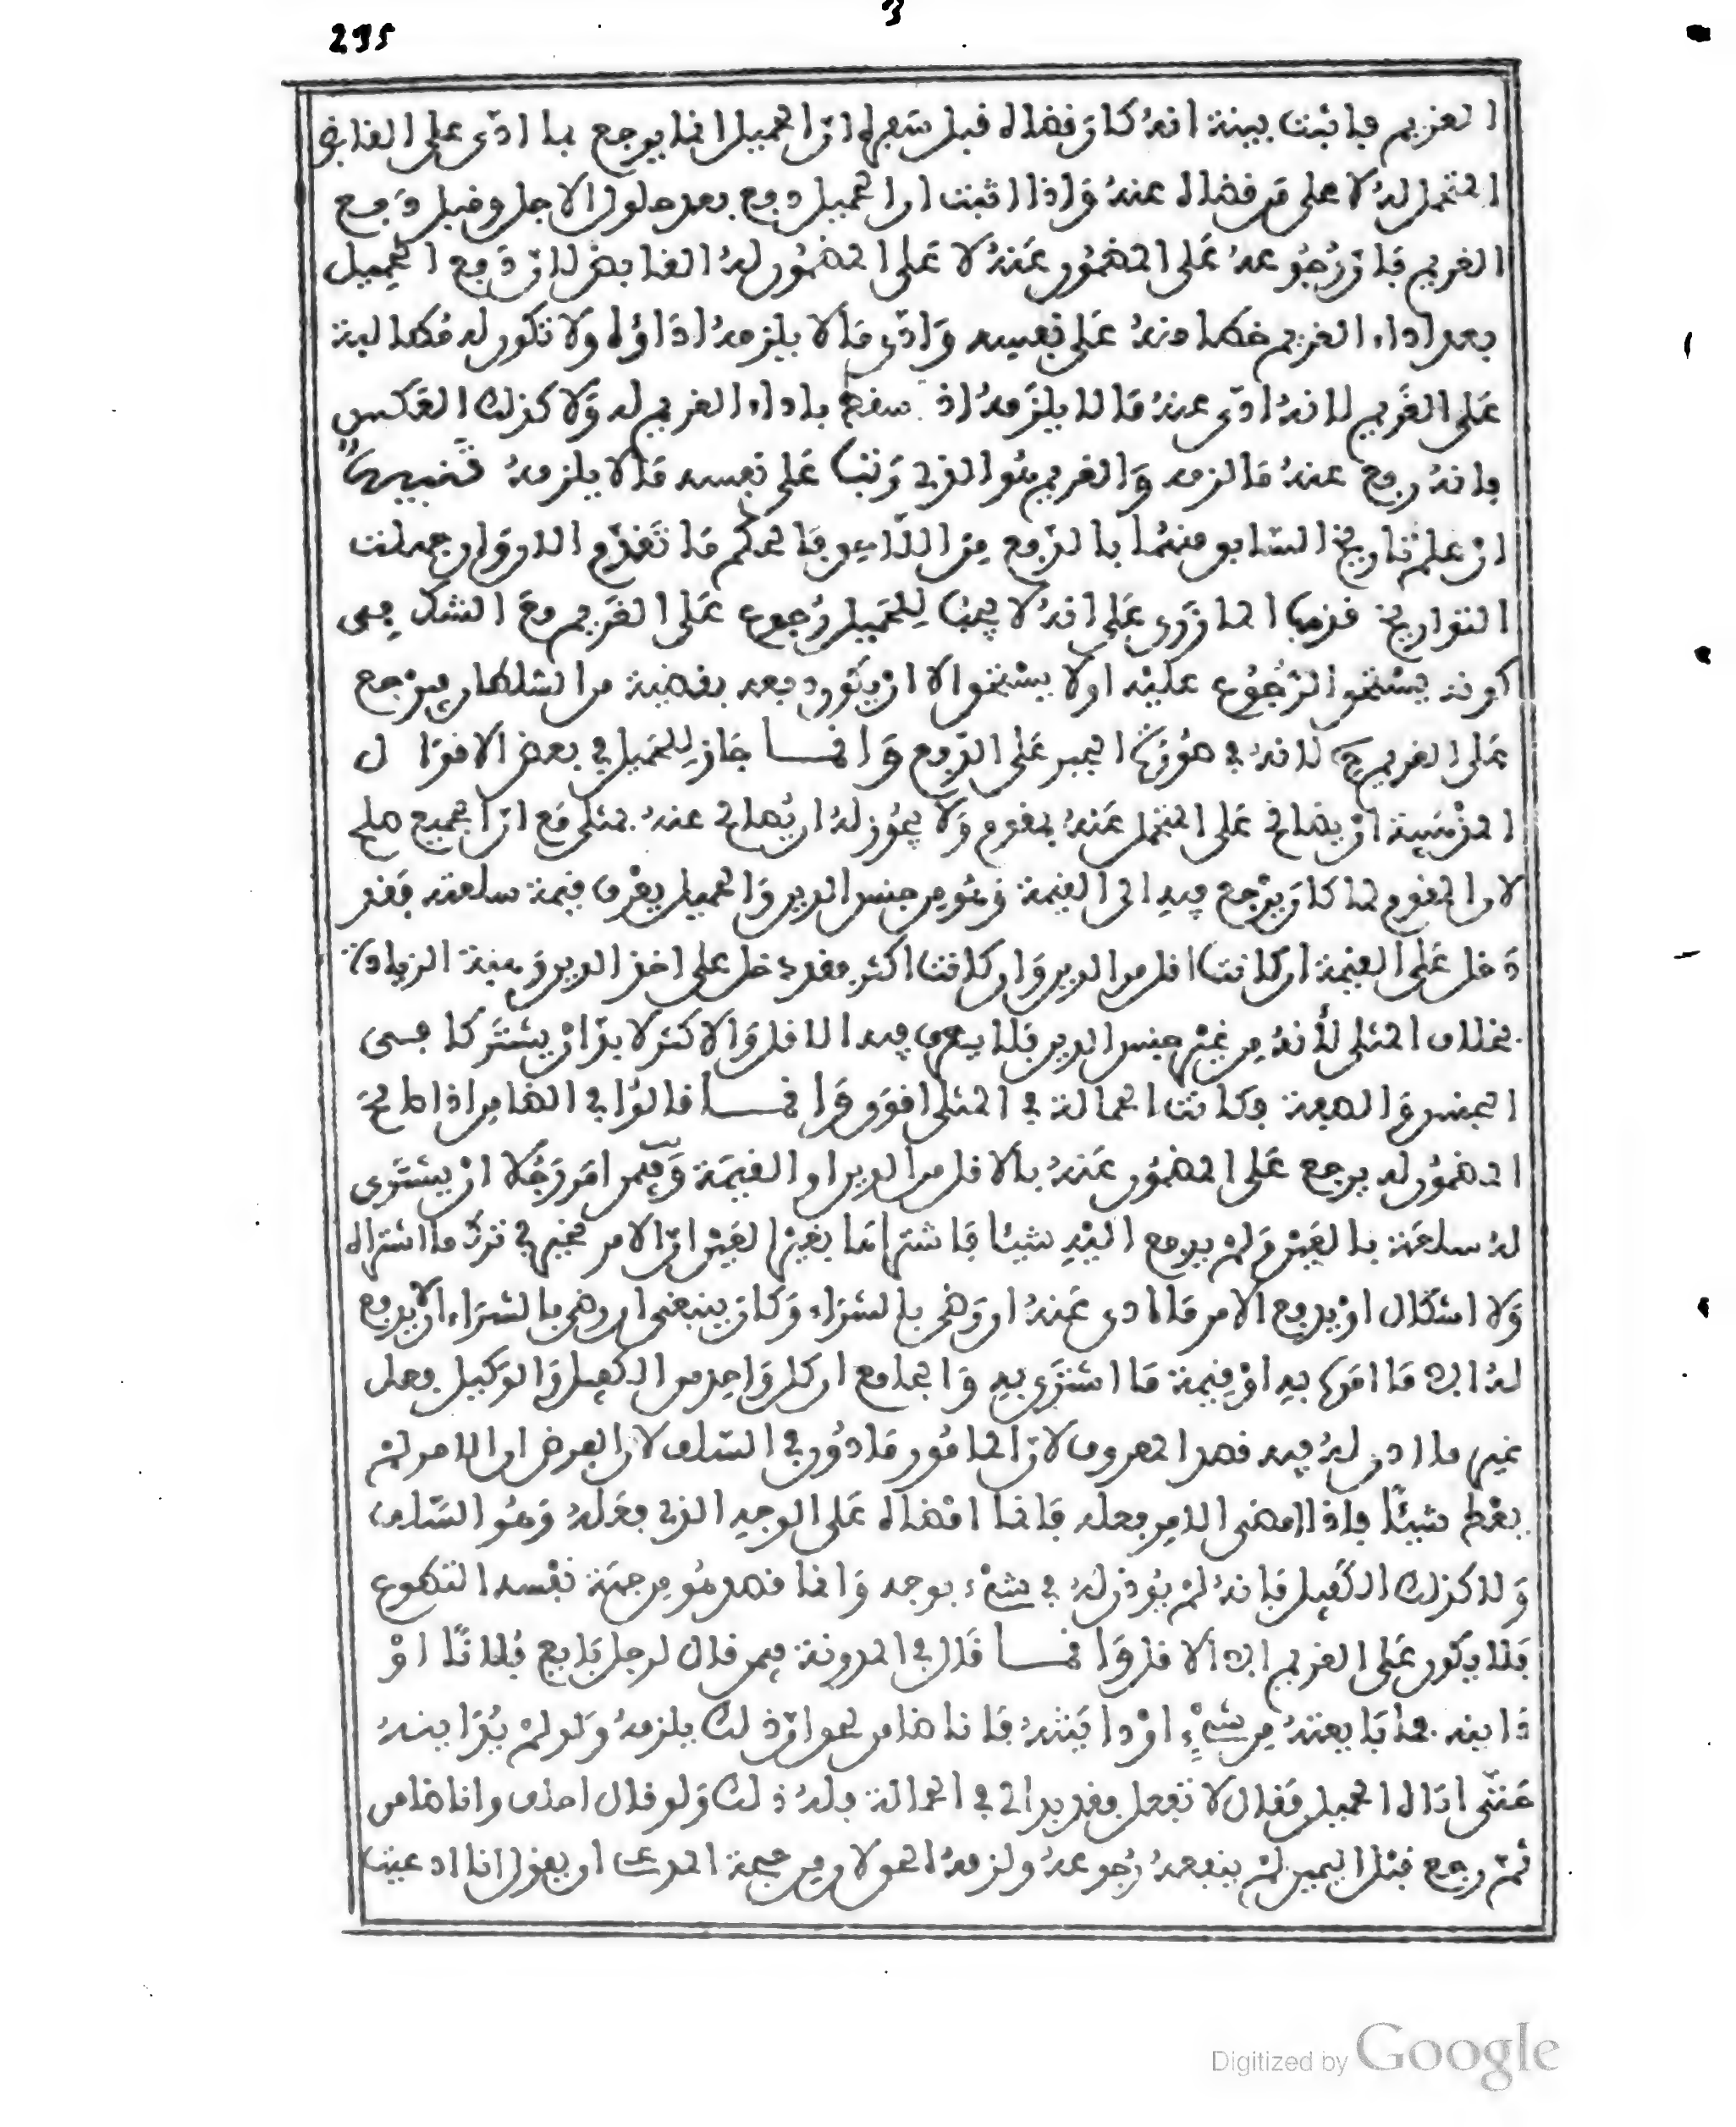 295
الغريم فاثبت ببينة انه كان قضاه قبل سفره ان الحميل انما يرجع بما ادّى على القابض
المتحمل له لا على من قضاه عنه واذا اثبت ان الحميل دفع بعد حلول الاجل وقبل دفع
الغريم فان رجوعه على المضمون عنه لا على المضمون له القابض لان دفع الحميل
بعد اداء الغريم خطا منه على نفسه وادّى ما لا يلزمه اداؤه ولا تكون له مطالبة
على الغريم لانه ادّى عنه ما لا يلزمه اذ سقط باداء الغريم له ولا كذلك العكس
فانه دفع عنه ما لزمه والغريم هو الذي وثب على نفسه ما لا يلزمه تنبيه
ان علم تاريخ السابق منهما بالدفع من اللاحق فالحكم ما تقدم الان وان جهلت
التواريخ فذهب المازري على انه لا يجب للحميل رجوع على الغريم مع الشك في
كونه يستحق الرجوع عليه او لا يستحق الا ان يكون دفعه بقضية من السلطان فيرجع
على الغريم لانه في صورة الجبر على الدفع وانما جاز للحميل في بعض الاقوال
ان يصالح على المتحمل عنه بمقوم ولا يجوز له ان يصالح عنه بمثلي مع ان الجميع صلح
لان المقوم لما كان يرجع فيه الى القيمة وهو من جنس الدين والحميل يعرف قيمة سلعته فقد
دخل على القيمة ان كانت اقل من الدين وان كانت اكثر فقد دخل على اخذ الدين وهبة الزيادة
بخلاف المثلي لأنه من غير جنس الدين فلا يعرف فيه الاقل والاكثر لا بد ان يشتركا في
الجنس والصفة فكانت الجهالة في المثلي اقوى وانما قالوا في الضامن اذا صالح
المضمون له يرجع على المضمون عنه بالاقل من الدين او القيمة وفيمن امر رجلا ان يشتري
له سلعة بالعين ولم يدفع اليه شيئا فاشتراها بغير العين ان الامر مخير في ترك ما اشتراه
ولا اشكال او يدفع الامر ما ادى عنه او رضي بالشراء وكان ينبغي ان رضي بالشراء الا يدفع
له الا ما امره به او قيمة ما اشترى به والجامع ان كل واحد من الكفيل والوكيل فعل
غير ما اذن له فيه قصد المعروف لان المامور ماذون في السلف لان الفرض ان الامر لم
يعط شيئًا فاذا امضى الامر فعله فانما امضاه على الوجه الذي فعله وهو السلف
ولا كذلك الكفيل فانه لم يؤذن له في شيء بوجه وانما قصد هو من جهة نفسه التطوع
فلا يكون على الغريم الا الاقل وانما قال في المدونة فيمن قال لرجل بايع فلانًا او
داينه فما بايعته من شيءٍ او داينته فانا ضامن لحق ان ذلك يلزمه ولو لم يداينه
حتى اتاه الحميل فقال لا تفعل فقد بدا لي في الحمالة فله ذلك ولو قال احلف وانا ضامن
ثم رجع قبل اليمين لم ينفعه رجوعه ولزمه الحق لان من حجة المدعي ان يقول انا ادعيت
Digitized by Google